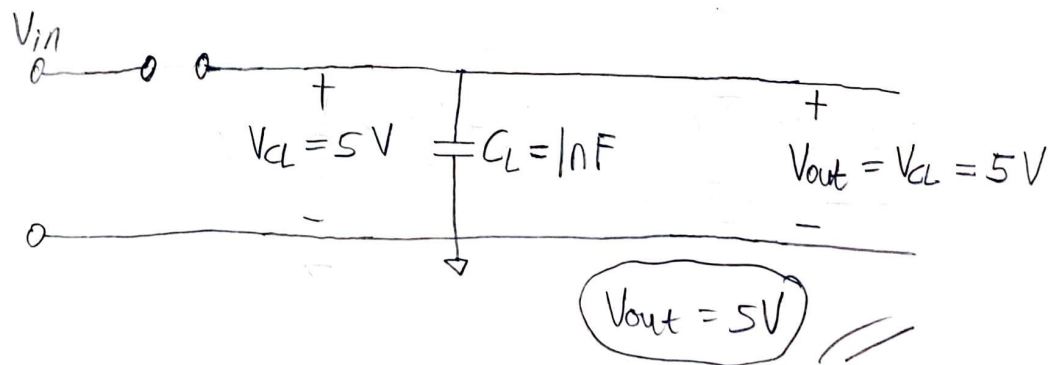 Vin
+
+
VCL = 5V
CL = 1nF
Vout = VCL = 5V
-
-
Vout = 5V